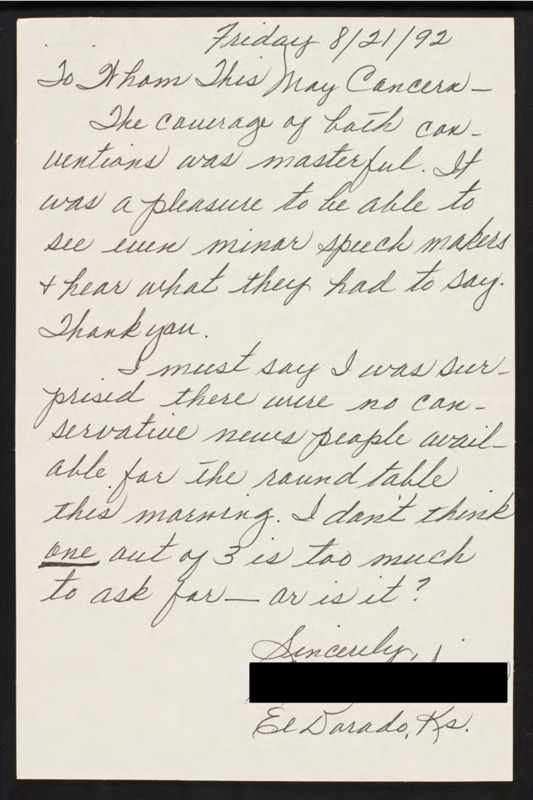 Friday 8/21/92
To Whom This May Concern—
The coverage of both con-
ventions was masterful. It
was a pleasure to be able to
see even minor speech makers
+ hear what they had to say.
Thank you.
I must say I was sur-
prised there were no con-
servative news people avail-
able for the round table
this morning. I don't think
one out of 3 is too much
to ask for— or is it?
Sincerely,
El Dorado, Ks.